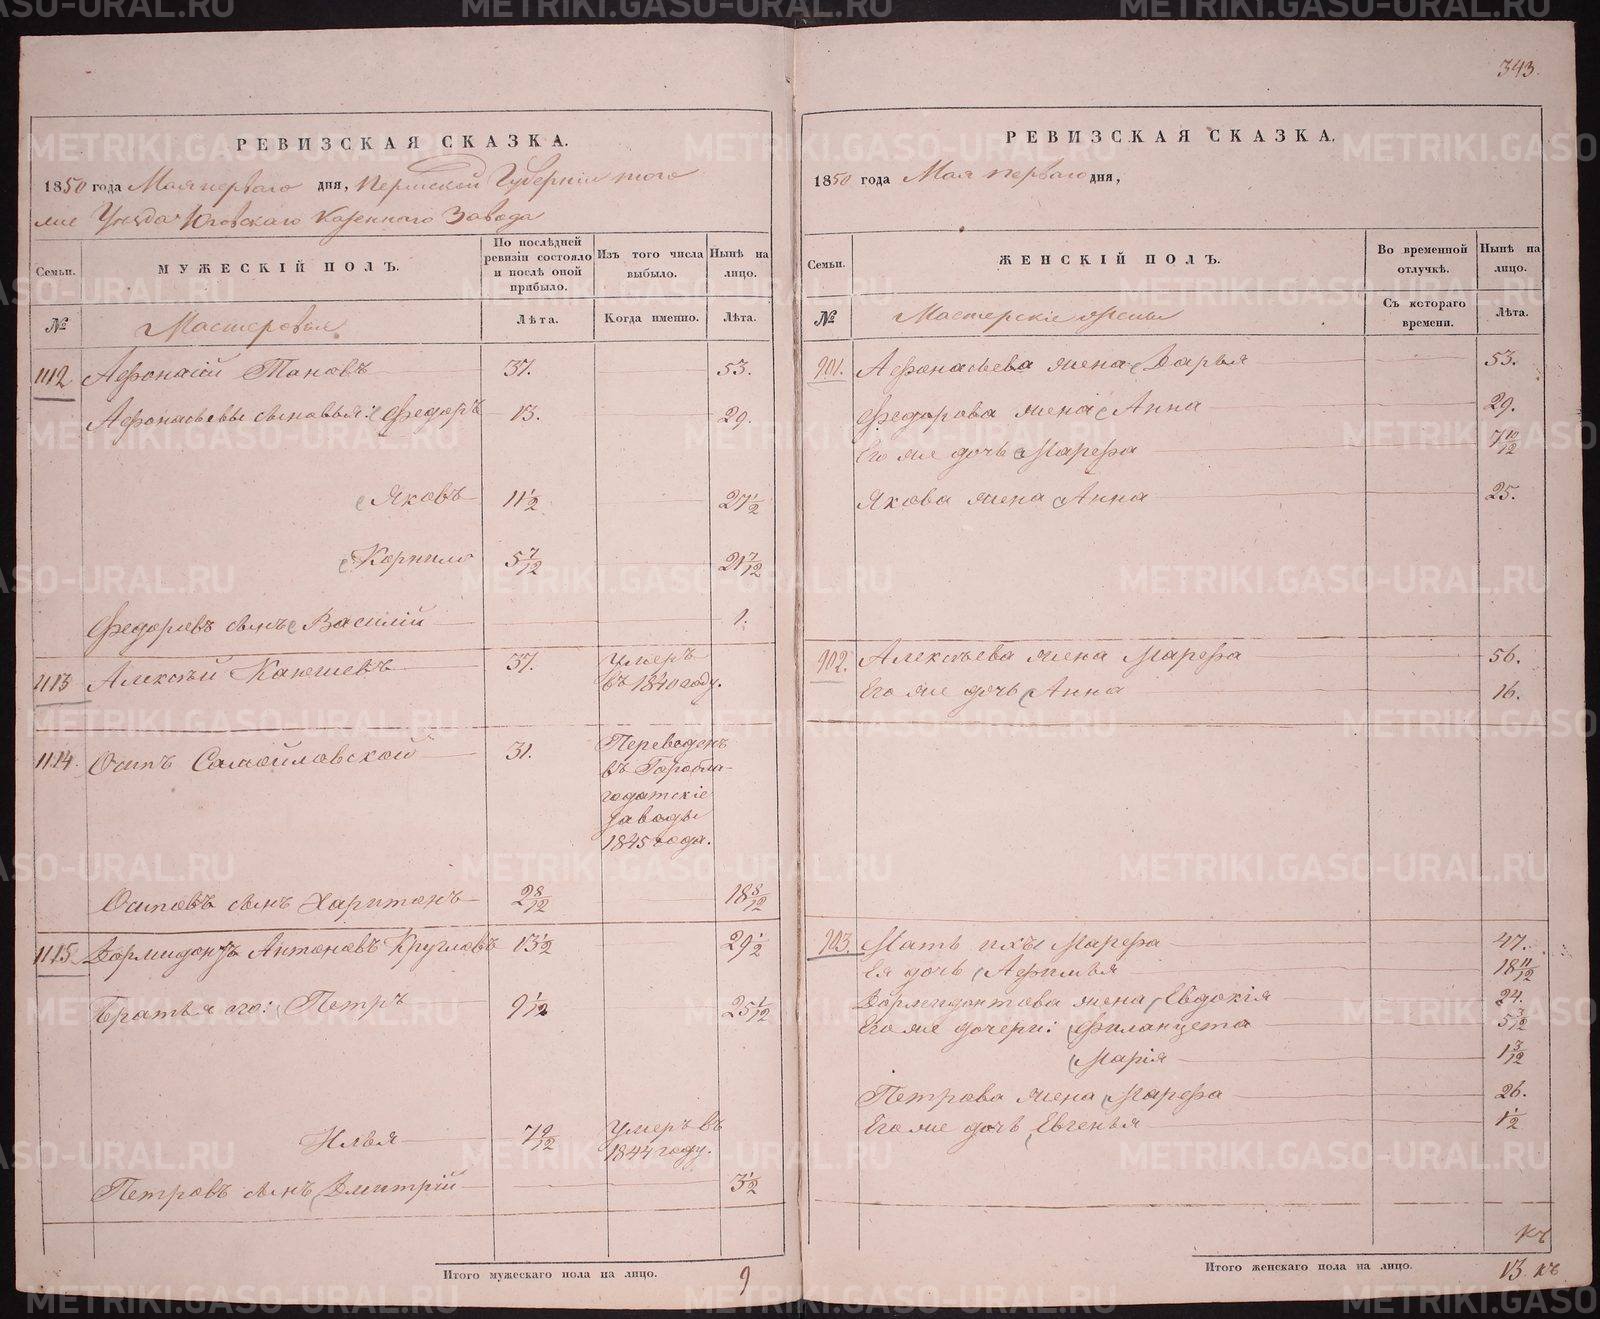 343.
РЕВИЗСКАЯ СКАЗКА.
1850 года Мая перваго дня, Пермской Губерніи того
же Уѣзда Юговскаго Казеннаго Завода
Семьи. МУЖЕСКІЙ ПОЛЪ. По послѣдней ревизіи состояло и послѣ оной прибыло. Изъ того числа выбыло. Нынѣ на лицо.
№ Мастеровые Лѣта. Когда именно. Лѣта.
1112 Афонасій Тановъ 37. 53.
Афонасьевы сыновья: Федоръ 13. 29.
Яковъ 11 1/2 27 1/2
Корнило 5 7/12 21 7/12
Федоровъ сынъ Василій 1.
1113 Алексѣй Каюшевъ 37. умеръ
въ 1840 году.
1114. Осипъ Самойловской 31. Переведенъ
въ Горобла-
годатскіе
заводы
1845 года.
Осиповъ сынъ Харитонъ 2 8/12 18 8/12
1115 Дормидонтъ Антоновъ Кругловъ 13 1/2 29 1/2
Братья его: Петръ 9 1/12 25 1/12
Илья 7 9/12 умеръ въ
1844 году.
Петровъ сынъ Дмитрій 3 1/2
Итого мужескаго пола на лицо. 9
РЕВИЗСКАЯ СКАЗКА.
1850 года Мая перваго дня,
Семьи. ЖЕНСКІЙ ПОЛЪ. Во временной отлучкѣ. Нынѣ на лицо.
№ Мастерскіе жены Съ котораго времени. Лѣта.
901. Афонасьева жена Дарья 53.
Федорова жена Анна 29.
Его же дочь Марефа 7 10/12
Якова жена Анна 25.
902. Алексѣева жена Марефа 56.
Его же дочь Анна 16.
903. Мать ихъ Марефа 47.
Ея дочь Афимья 18 11/12
Дормидонтова жена Евдокія 24.
Его же дочери: Филанцета 5 3/12
Марія 1 3/12
Петрова жена Марефа 26.
Его же дочь Евгенья 1 1/2
Итого женскаго пола на лицо. 13.
METRIKI.GASO-URAL.RU